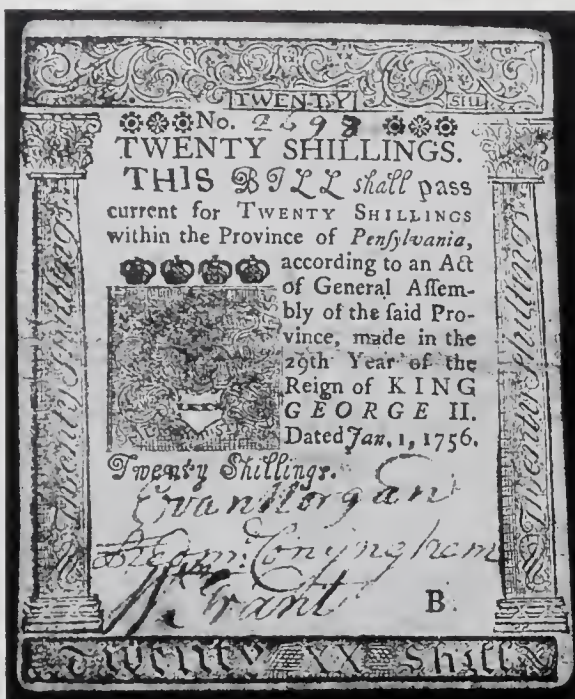 TWENTY SHIL
No. 2698
TWENTY SHILLINGS.
THIS BILL shall pass
current for TWENTY SHILLINGS
within the Province of Penſylvania,
according to an Act
of General Aſſem-
bly of the ſaid Pro-
vince, made in the
29th Year of the
Reign of KING
GEORGE II.
Dated Jan. 1, 1756.
Twenty Shillings.
Evan Morgan
Conyngham
Grant
B
Twenty Shillings
Twenty Shillings
Twenty XX Shill